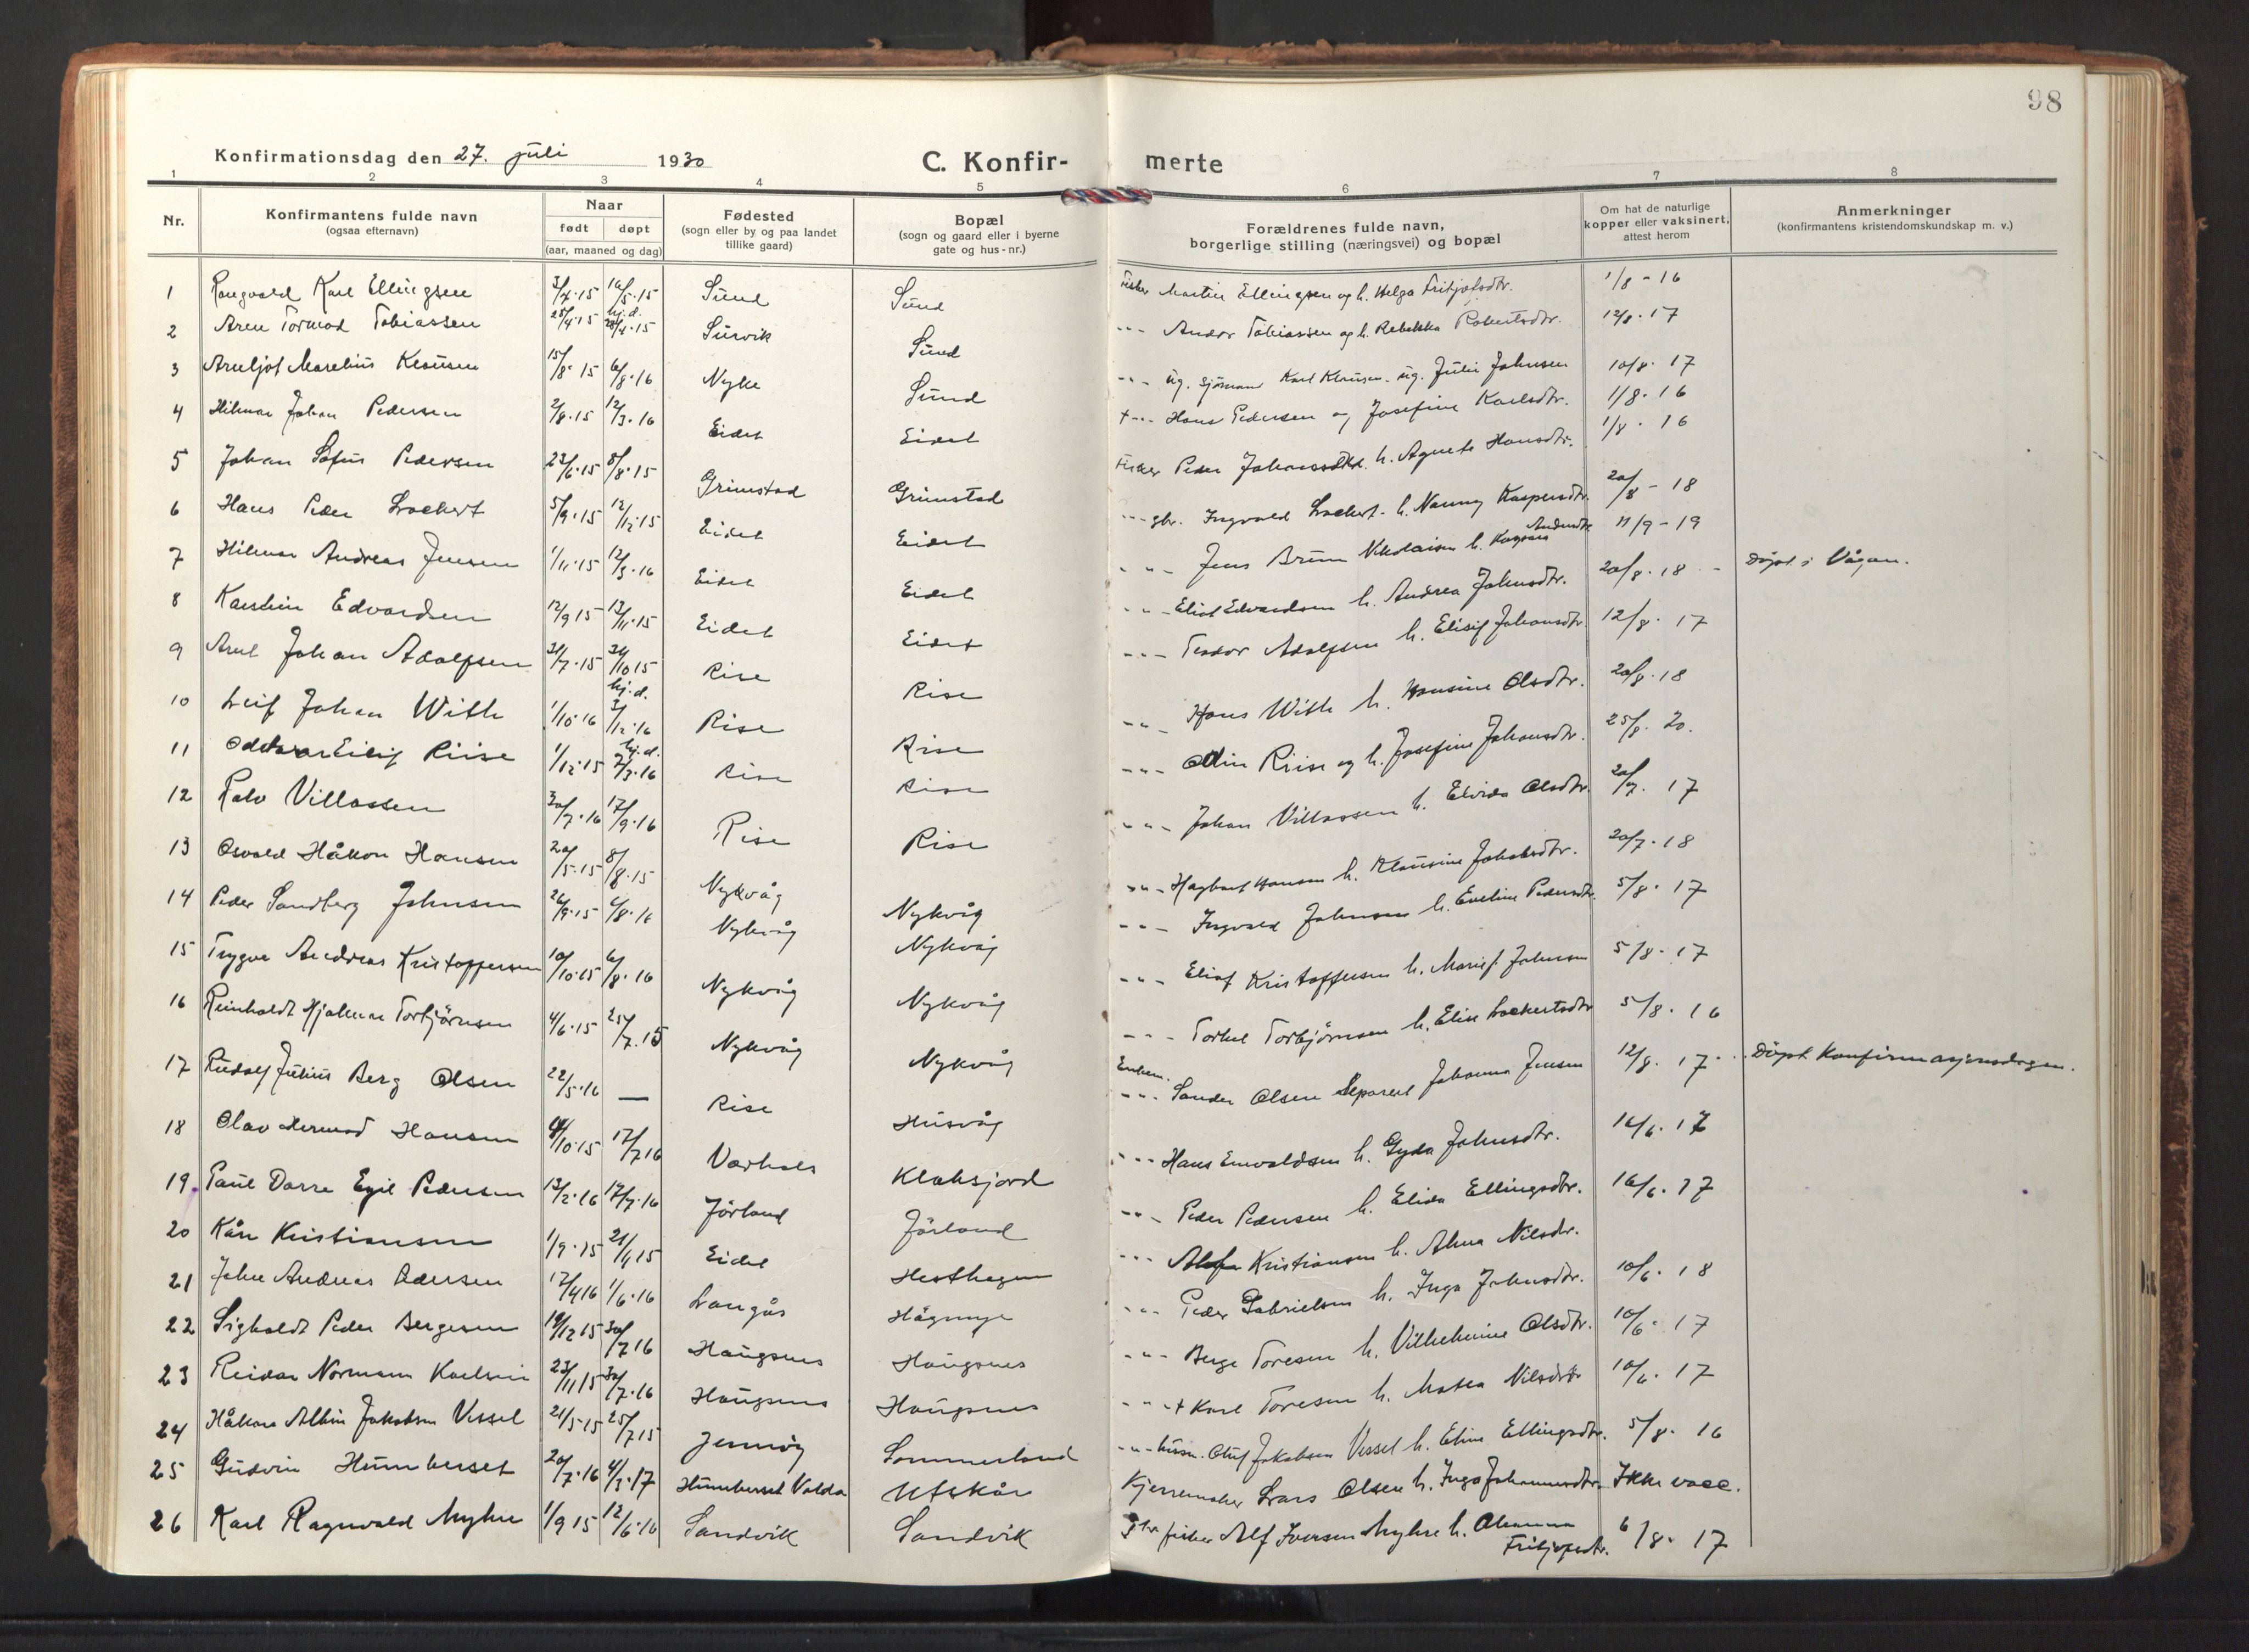 98
Konfirmationsdag den 27. juli 1930 C. Konfir- merte
1 2 3 4 5 6 7 8
Nr. Konfirmantens fulde navn (ogsaa efternavn) Naar født døpt (aar, maaned og dag) Fødested (sogn eller by og paa landet tillike gaard) Bopæl (sogn og gaard eller i byerne gate og hus-nr.) Forældrenes fulde navn, borgerlige stilling (næringsvei) og bopæl Om hat de naturlige kopper eller vaksinert, attest herom Anmerkninger (konfirmantens kristendomskundskap m. v.)
1 Rangvald Karl Ellingsen 3/4.15 16/5.15 Sund Sund Fisker Martin Ellingsen og h. Helga Fritjofsdtr. 1/8-16
2 Aren Tormod Tobiassen 25/4.15 hj.d. 28/4.15 Survik Sund --- Andor Tobiassen og h. Rebekka Robertsdtr. 12/8.17
3 Arnljot Marelius Klausen 15/8.15 6/8.16 Nyke Sund --- ug. sjömand Karl Klausen - ug. Julie Johnsen 10/8.17
4 Hilmar Johan Pedersen 2/8.15 12/3.16 Eidet Eidet +-- Hans Pedersen og Josefine Karlsdtr. 1/8.16
5 Johan Sofus Pedersen 23/6.15 8/8.15 Grimstad Grimstad Fisker Peder h. Agnete Hansdtr. 1/8.16
6 Hans Peder Lockert 5/9.15 12/12.15 Eidet Eidet --- gbr. Ingvald Lockert - h. Nanny Kaspersdtr. 20/8-18
7 Hilmar Andreas Jensen 1/11.15 12/3.16 Eidet Eidet --- Jens Brun Nikolaisen h. Andersdtr 11/9-19 Döpt i Vågan.
8 Karstein Edvardsen 12/9 15 13/11.15 Eidet Eidet --- Eliot Edvardsen h. Andrea Johnsdtr. 20/8.18 -
9 Arnt Johan Adolfsen 21/7.15 24/10 15 Rise Rise --- Teodor Adolfsen h. Elisif Johansdtr. 12/8.17
10 Leif Johan With 1/10.16 hj.d. 3/12.16 Rise Rise --- Hans With h. Hansine Olsdtr. 20/8.18
11 Oddvar Eilif Riise 1/12.15 hj.d. 7/3.16 Rise Rise --- Odin Riise og h. Josefine Johansdtr. 25/8.20.
12 Rolv Villassen 30/7.16 17/9.16 Rise Rise --- Johan Villassen h. Elvida Olsdtr. 20/7.17
13 Osvald Håkon Hansen 20/5.15 8/8.15 Nykvåg Nykvåg --- Hagbart Hansen h. Klausine Jakobsdtr. 20/7.18
14 Peder Sandberg Johnsen 26/9.15 6/8.16 Nykvåg Nykvåg --- Ingvald Johnsen h. Eveline Pedersdtr. 5/8.17
15 Trygve Andreas Kristoffersen 10/10.15 6/8.16 Nykvåg Nykvåg --- Eliaf Kristoffersen h. Marie f. Johnsen 5/8.17
16 Reinholdt Hjalmar Torbjörnsen 4/6.15 25/7.15 Nykvåg Nykvåg --- Torkel Torbjörnsen h. Elise Lockertsdtr 5/8.16
17 Rudolf Julius Berg Olsen 22/5.16 — Rise Husvåg Enkem. --- Sander Olsen Separert Johanna Jensen 12/8.17 -- Döpt Konfirmasjonsdagen.
18 Olav Hermod Hansen /10.15 17/7 16 Vorhols Klaksjord --- Hans Enevoldsen h. Gyda Johnsdtr. 16/6.17
19. Paul Dorre Egil Pedersen 13/2.16 17/7.16 Jörland Jörland --- Peder Pedersen h. Elida Ellingsdtr. 16/6.17
20 Kåre Kristiansen 1/9.15 21/11 15 Eidet Hesthagen --- Kristiansen h. Alma Nilsdtr.
21 John Andreas Pedersen 17/4 16 1/6.16 Langås Hågmyr --- Peder Gabrielsen h. Inga Johnsdtr. 10/6.18
22 Sigbaldt Peder Bergesen 19/12 15 30/7 16 Haugsnes Haugsnes --- Berge Toresen h. Vilhelmine Olsdtr. 10/6.17
23 Reidar Normann Karlsen 23/11 15 30/7.16 Haugsnes Haugsnes ---+ Karl Toresen h. Matea Nilsdtr 10/6.17
24 Håkon Albin Jakobsen Vessel 21/5.15 25/7 15 Jennöy Sommerland --- husm. Oluf Jakobsen Vessel h. Eline Ellingsdtr. 5/8.16
25 Gudvin Humberset 20/7.16 4/3.17 Humberset Volda Utskår Kjerremaker Lars Olsen h. Inga Johannesdtr. Ikke vacc.
26 Karl Ragnvald Myhre 1/9 15 12/6.16 Sandvik Sandvik gbr fisker Alf Iversen Myhre h. Fritjofsdtr. 6/8.17